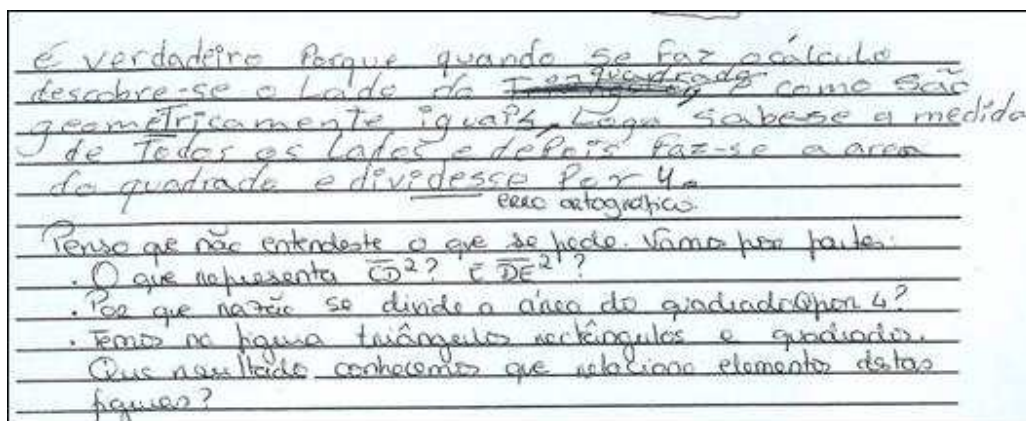 é verdadeiro Porque quando se faz o cálculo
descobre-se o Lado do quadrado e como são
geometricamente iguais, Logo sabese a medida
de Todos os Lados e depois faz-se a area
do quadrado e dividesse Por 4.
erro ortográfico.
Penso que não entendeste o que se pede. Vamos por partes:
. O que representa CD²? E DE²?
. Por que razão se divide a área do quadrado por 4?
. Temos na figura triângulos rectângulos e quadrados.
Que resultado conhecemos que relaciona elementos destas
figuras?